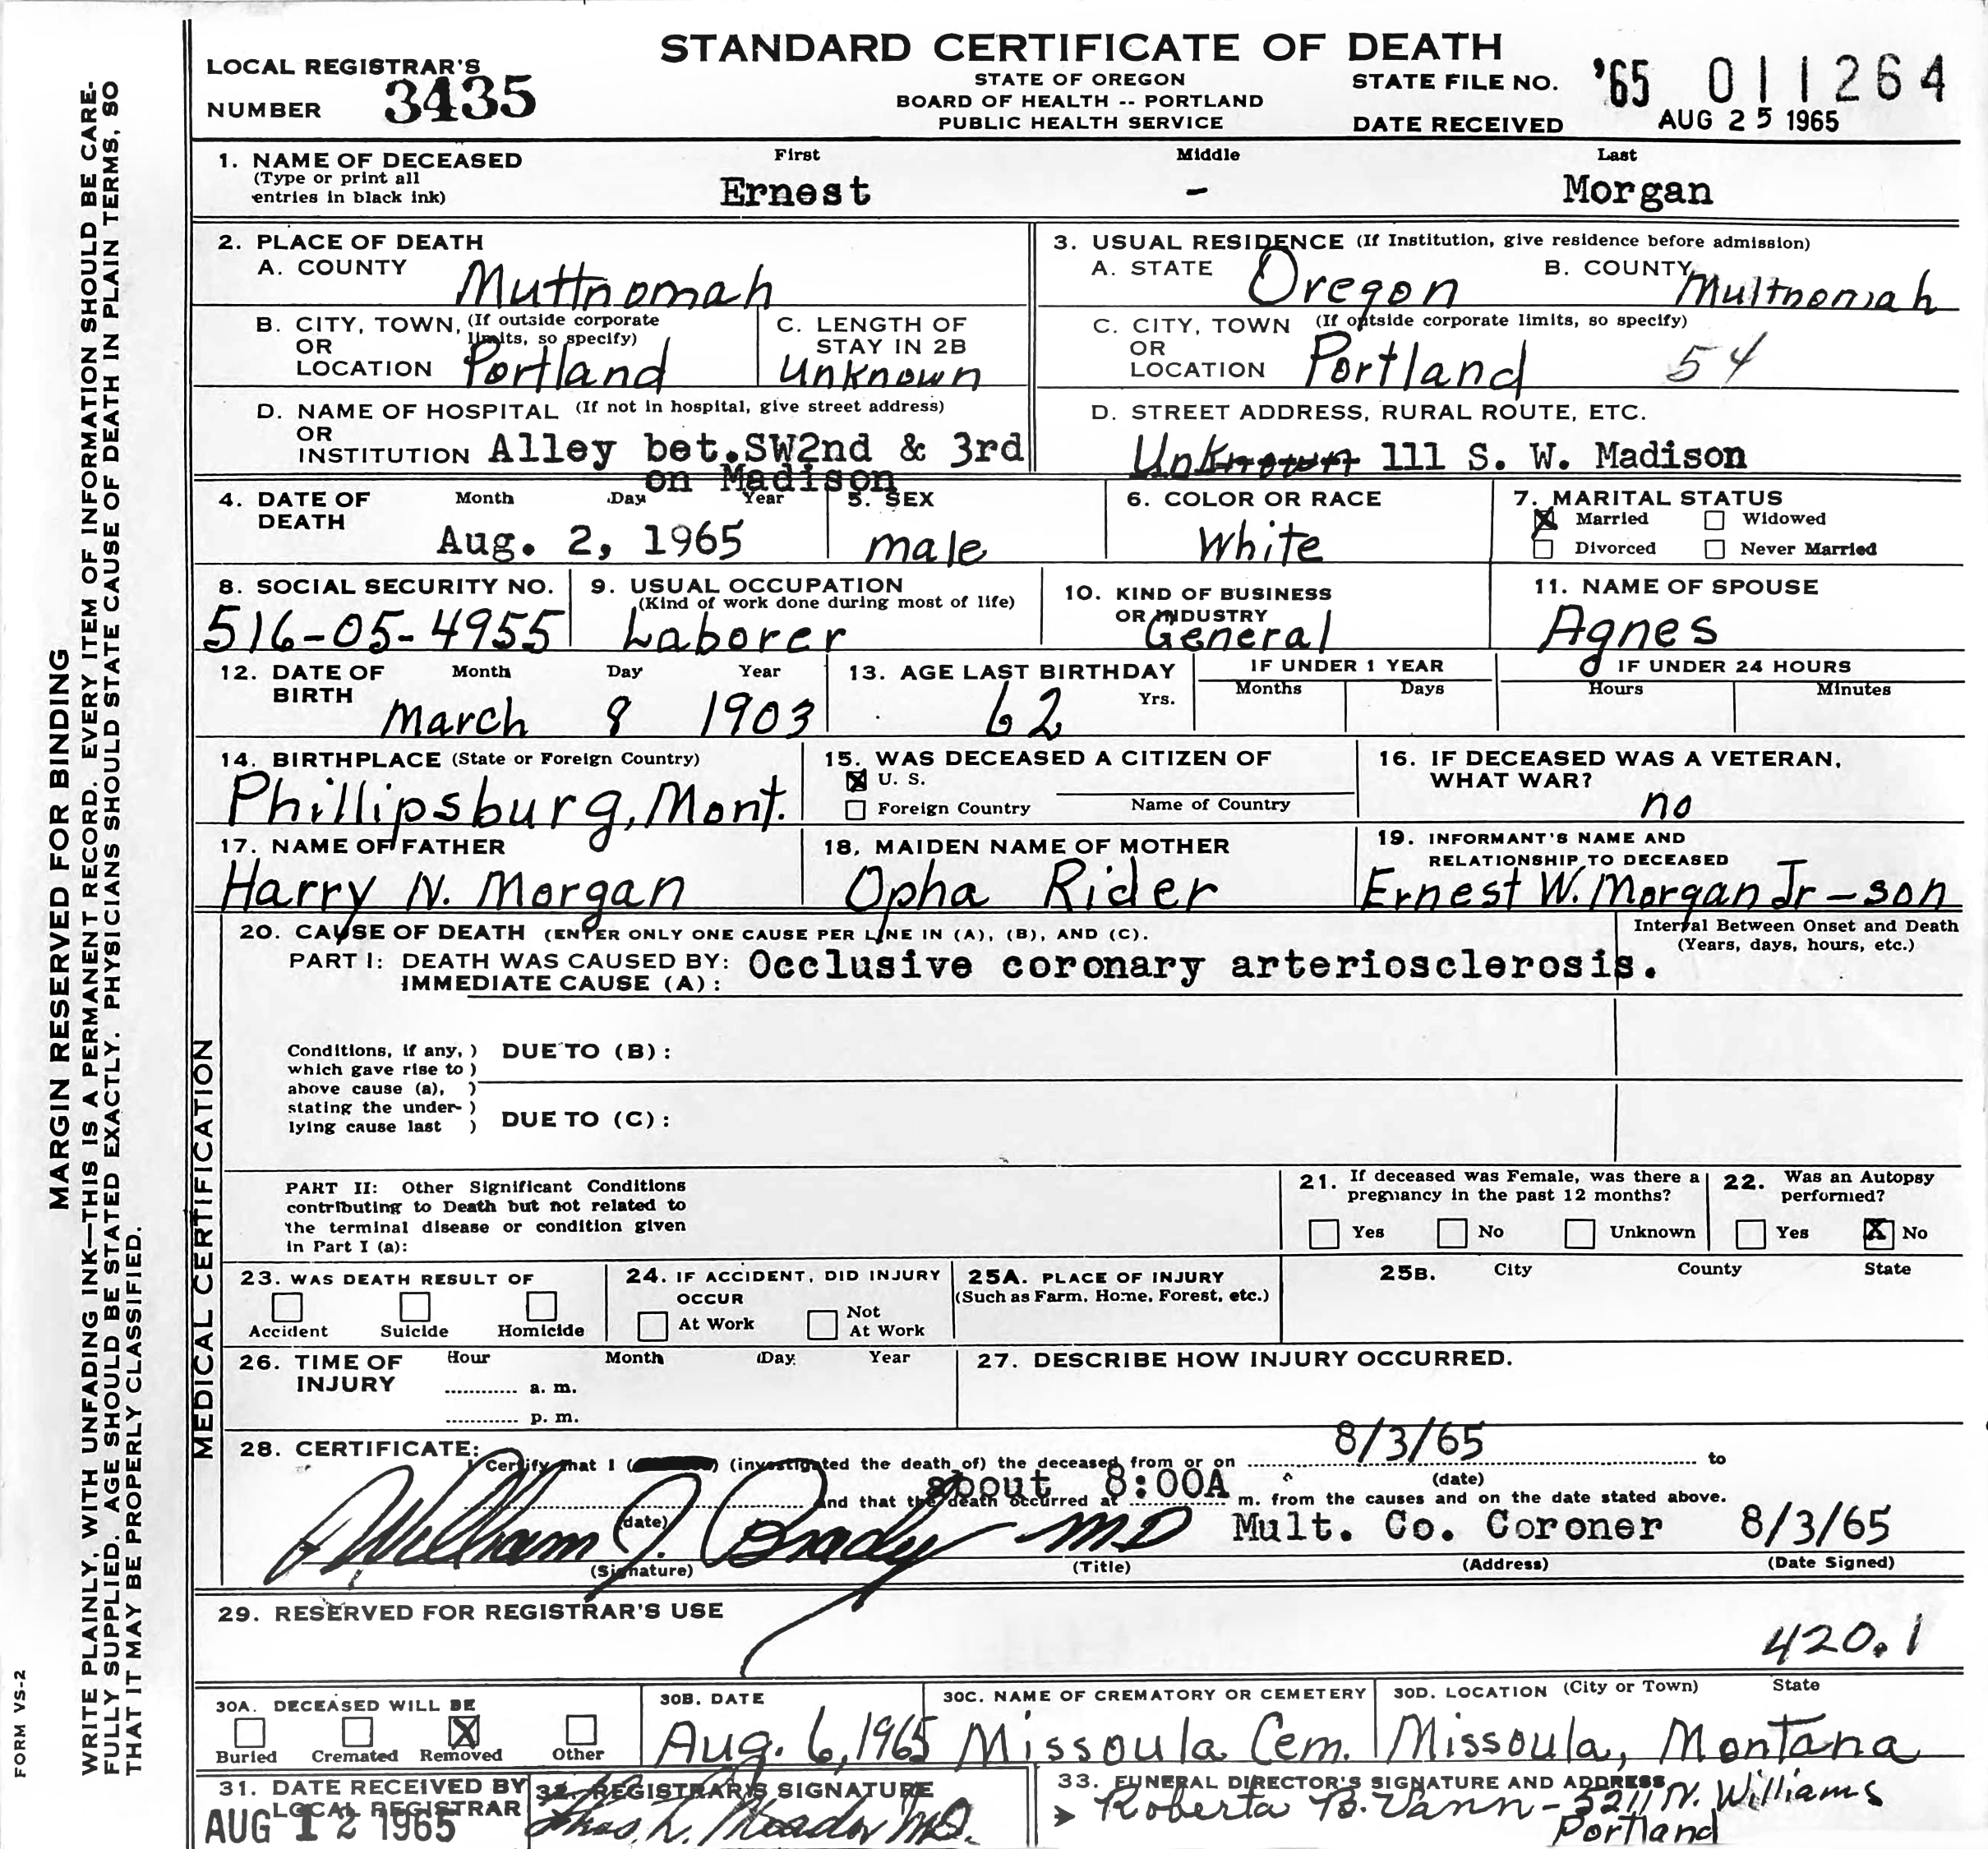 STANDARD CERTIFICATE OF DEATH
STATE OF OREGON
BOARD OF HEALTH -- PORTLAND
PUBLIC HEALTH SERVICE
LOCAL REGISTRAR'S
NUMBER 3435
STATE FILE NO. '65 011264
DATE RECEIVED AUG 25 1965
1. NAME OF DECEASED First Middle Last
(Type or print all
entries in black ink)
Ernest - Morgan
2. PLACE OF DEATH
A. COUNTY Multnomah
B. CITY, TOWN, (If outside corporate
OR limits, so specify)
LOCATION Portland
C. LENGTH OF
STAY IN 2B
Unknown
D. NAME OF HOSPITAL (If not in hospital, give street address)
OR
INSTITUTION Alley bet.SW2nd & 3rd
on Madison
3. USUAL RESIDENCE (If Institution, give residence before admission)
A. STATE Oregon B. COUNTY Multnomah
C. CITY, TOWN (If outside corporate limits, so specify)
OR
LOCATION Portland 54
D. STREET ADDRESS, RURAL ROUTE, ETC.
Unknown 111 S. W. Madison
4. DATE OF Month Day Year
DEATH
Aug. 2, 1965
5. SEX
male
6. COLOR OR RACE
White
7. MARITAL STATUS
X Married Widowed
Divorced Never Married
8. SOCIAL SECURITY NO.
516-05-4955
9. USUAL OCCUPATION
(Kind of work done during most of life)
Laborer
10. KIND OF BUSINESS
OR INDUSTRY
General
11. NAME OF SPOUSE
Agnes
12. DATE OF Month Day Year
BIRTH
March 8 1903
13. AGE LAST BIRTHDAY
62 Yrs.
IF UNDER 1 YEAR
Months Days
IF UNDER 24 HOURS
Hours Minutes
14. BIRTHPLACE (State or Foreign Country)
Phillipsburg, Mont.
15. WAS DECEASED A CITIZEN OF
X U. S.
Foreign Country Name of Country
16. IF DECEASED WAS A VETERAN,
WHAT WAR?
no
17. NAME OF FATHER
Harry N. Morgan
18. MAIDEN NAME OF MOTHER
Opha Rider
19. INFORMANT'S NAME AND
RELATIONSHIP TO DECEASED
Ernest W. Morgan Jr - son
MEDICAL CERTIFICATION
20. CAUSE OF DEATH (ENTER ONLY ONE CAUSE PER LINE IN (A), (B), AND (C).
Interval Between Onset and Death
(Years, days, hours, etc.)
PART I: DEATH WAS CAUSED BY: Occlusive coronary arteriosclerosis.
IMMEDIATE CAUSE (A):
Conditions, if any, ) DUE TO (B):
which gave rise to )
above cause (a), )
stating the under- )
lying cause last ) DUE TO (C):
PART II: Other Significant Conditions
contributing to Death but not related to
the terminal disease or condition given
in Part I (a):
21. If deceased was Female, was there a
pregnancy in the past 12 months?
Yes No Unknown
22. Was an Autopsy
performed?
Yes X No
23. WAS DEATH RESULT OF
Accident Suicide Homicide
24. IF ACCIDENT, DID INJURY
OCCUR
At Work Not
At Work
25A. PLACE OF INJURY
(Such as Farm, Home, Forest, etc.)
25B. City County State
26. TIME OF Hour Month Day Year
INJURY
a. m.
p. m.
27. DESCRIBE HOW INJURY OCCURRED.
28. CERTIFICATE:
I Certify that I ( ) (investigated the death of) the deceased from or on 8/3/65 to
(date)
and that the death occurred at about 8:00A m. from the causes and on the date stated above.
(date)
William J. Brady MD Mult. Co. Coroner 8/3/65
(Signature) (Title) (Address) (Date Signed)
29. RESERVED FOR REGISTRAR'S USE
420.1
30A. DECEASED WILL BE
Buried Cremated X Removed Other
30B. DATE
Aug. 6, 1965
30C. NAME OF CREMATORY OR CEMETERY
Missoula Cem.
30D. LOCATION (City or Town) State
Missoula, Montana
31. DATE RECEIVED BY
LOCAL REGISTRAR
AUG 12 1965
32. REGISTRAR'S SIGNATURE
Thos. L. Meador MD.
33. FUNERAL DIRECTOR'S SIGNATURE AND ADDRESS
Roberta B. Vann - 5211 N. Williams
Portland
MARGIN RESERVED FOR BINDING
WRITE PLAINLY, WITH UNFADING INK—THIS IS A PERMANENT RECORD. EVERY ITEM OF INFORMATION SHOULD BE CARE-
FULLY SUPPLIED. AGE SHOULD BE STATED EXACTLY. PHYSICIANS SHOULD STATE CAUSE OF DEATH IN PLAIN TERMS, SO
THAT IT MAY BE PROPERLY CLASSIFIED.
FORM VS-2